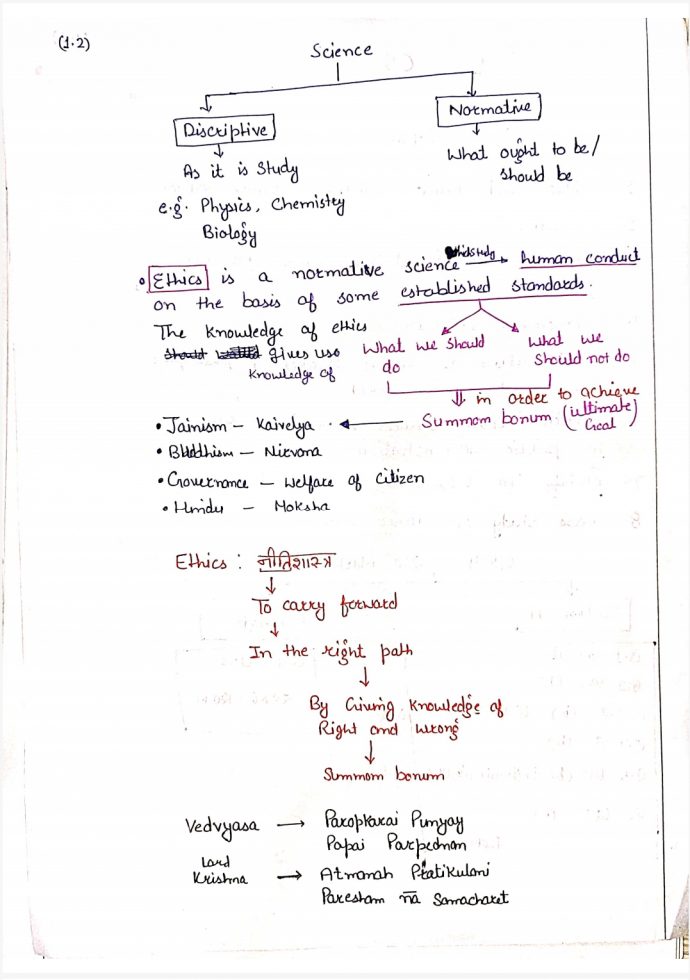 (1.2)
Science
Discriptive
Normative
As it is Study
What ought to be/
Should be
e.g. Physics, Chemistry
Biology
• Ethics is a normative science → human conduct
on the basis of some established standards.
The Knowledge of ethics
gives use
Knowledge of
What we should
do
What we
Should not do
⇓ in order to achieve
Summom bonum (ultimate Goal)
• Jainism – Kaivelya
• Buddhism – Nirvana
• Governance – Welfare of citizen
• Hindu – Moksha
Ethics : नीतिशास्त्र
To carry forward
In the right path
By Giving Knowledge of
Right and wrong
Summom bonum
Vedvyasa → Paropkarai Punyay
Papai Parpednan
Lord
Krishna → Atmanah Pratikulani
Paresham na Samacharet